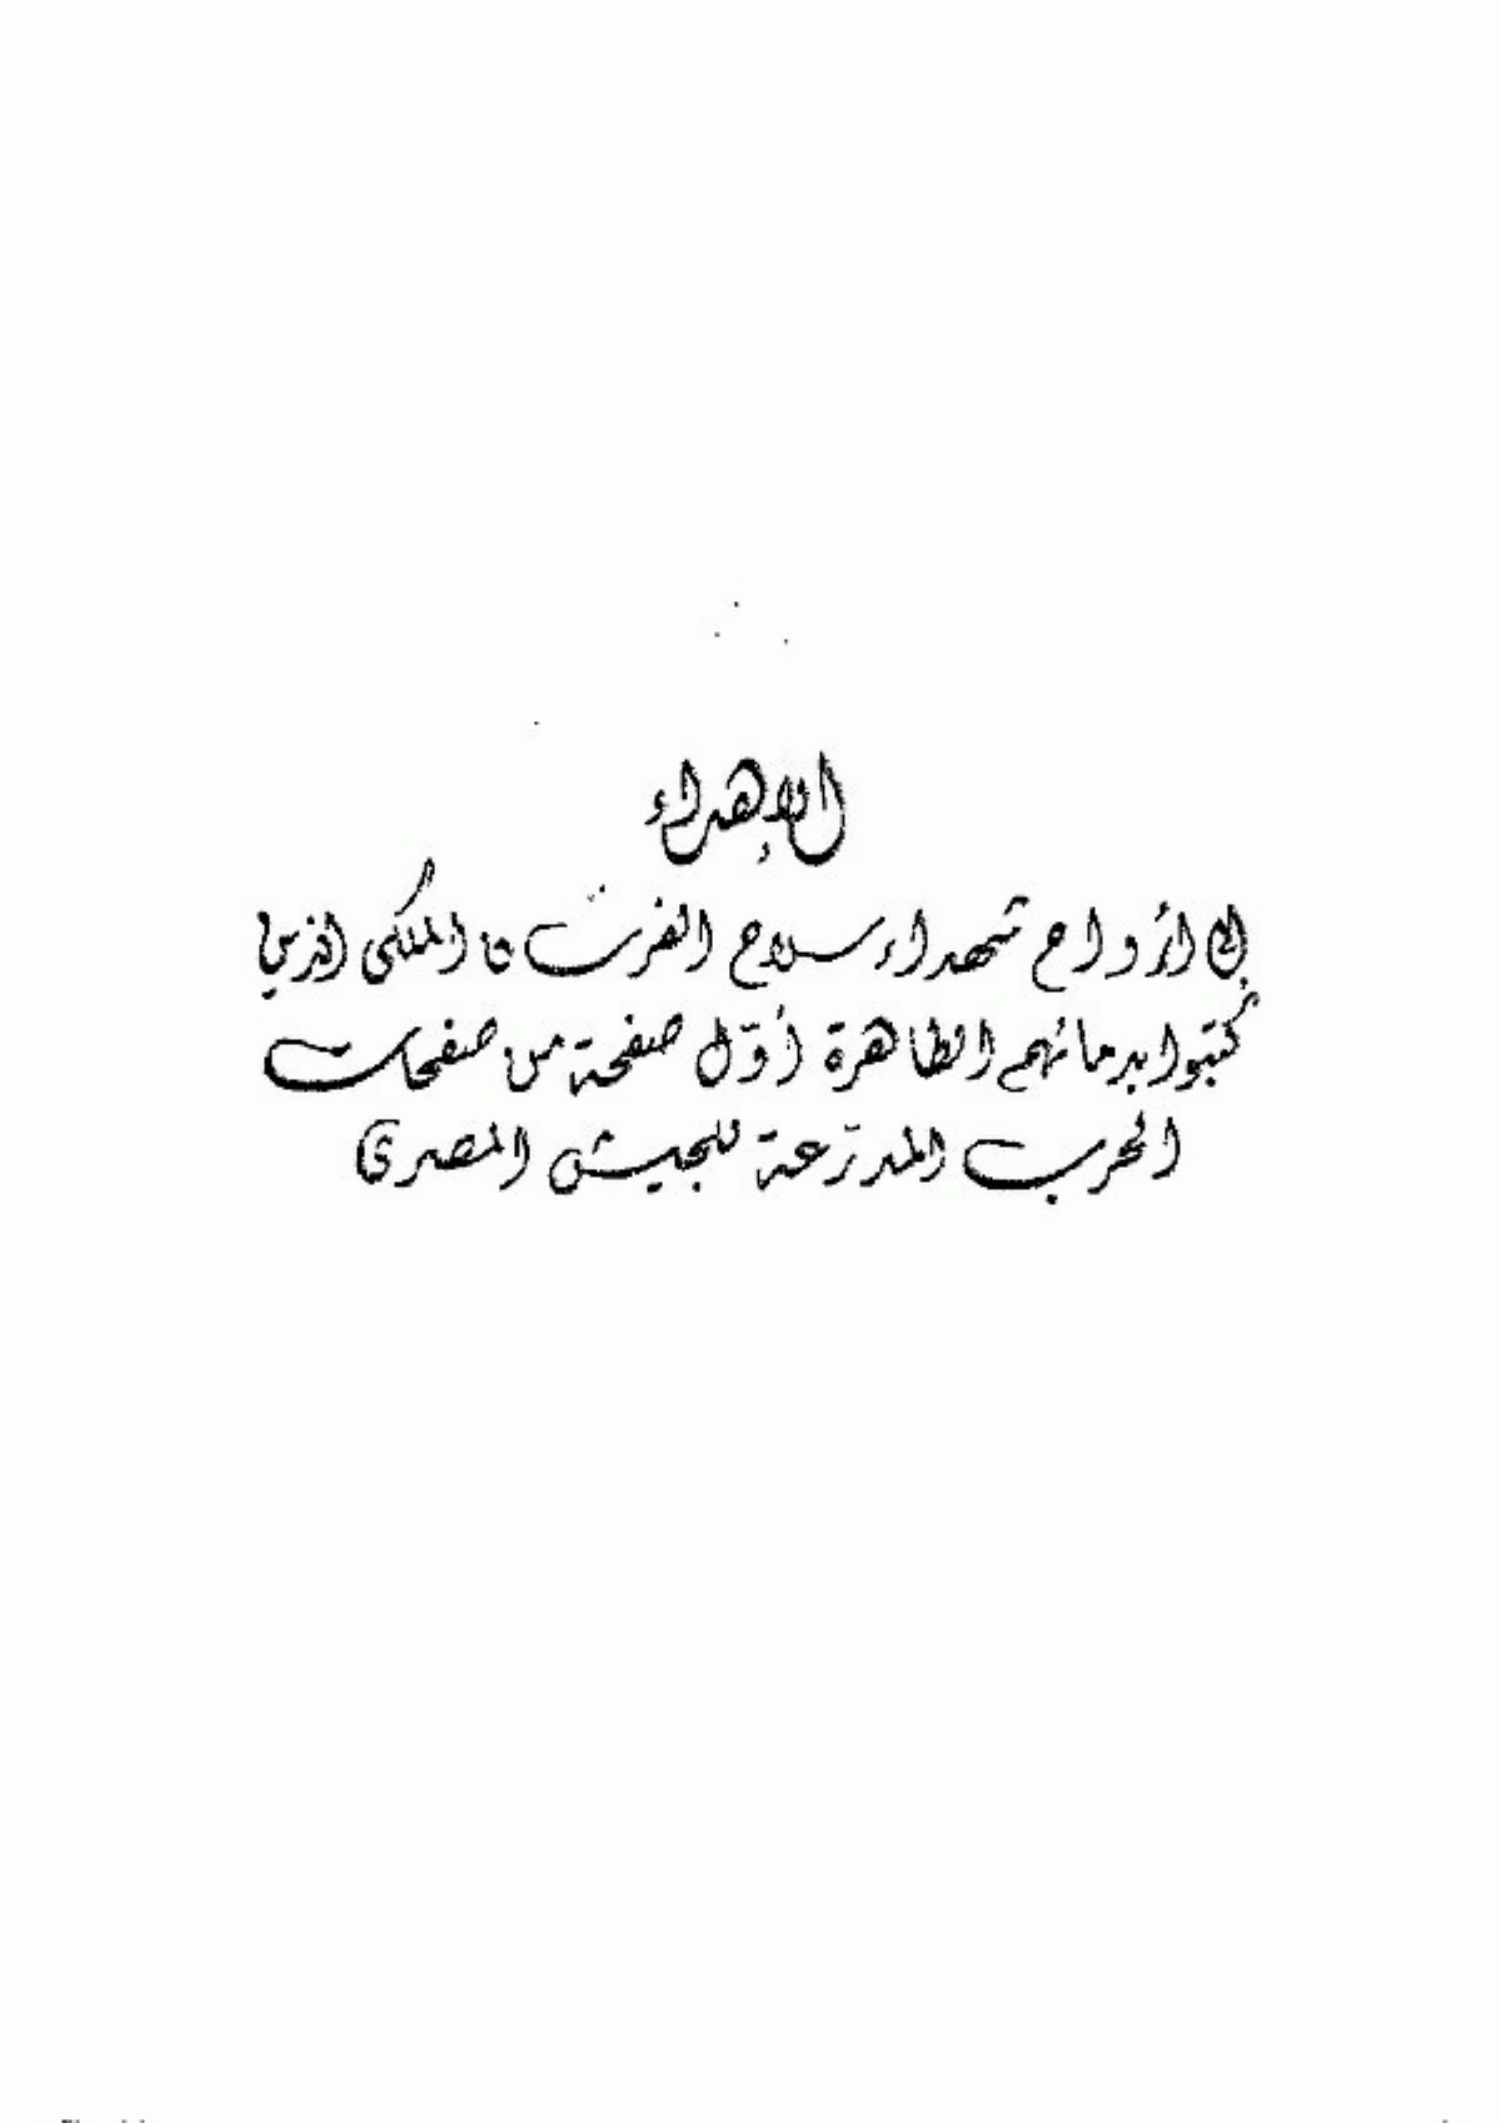 الإهداء
إلى أرواح شهداء سلاح الفرسان الملكى الذين
كتبوا بدمائهم الطاهرة أوّل صفحة من صفحات
الحرب المدرّعة للجيش المصرى